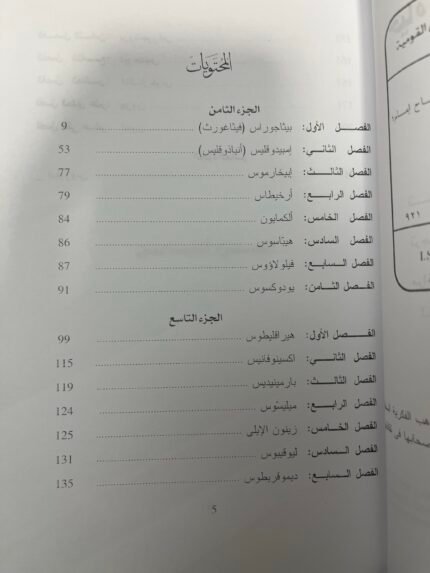 المحتويات
الجزء الثامن
الفصل الأول: بيثاجوراس (فيثاغورث) ........ 9
الفصل الثاني: إمبيدوقليس (أنباذوقليس) ........ 53
الفصل الثالث: إپيخارموس ........ 77
الفصل الرابع: أرخيطاس ........ 79
الفصل الخامس: ألكمايون ........ 84
الفصل السادس: هيپاسوس ........ 86
الفصل السابع: فيلولاؤوس ........ 87
الفصل الثامن: يودوكسوس ........ 91
الجزء التاسع
الفصل الأول: هيراقليطوس ........ 99
الفصل الثاني: اكسينوفانيس ........ 115
الفصل الثالث: بارمينيديس ........ 119
الفصل الرابع: ميليسّوس ........ 124
الفصل الخامس: زينون الإيلى ........ 125
الفصل السادس: ليوقيبوس ........ 131
الفصل السابع: ديموقريطوس ........ 135
5
القومية
٩٢١
الفكرية